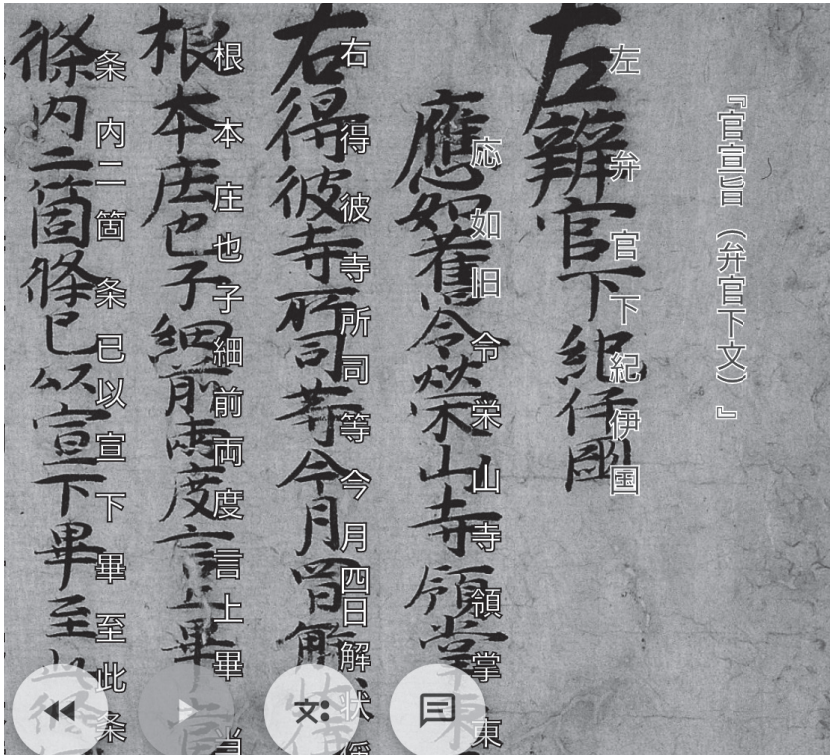 『官宣旨（弁官下文）』
左弁官下紀伊国
応如旧令栄山寺領掌東
右得彼寺所司等今月四日解状偁
根本庄也子細前両度言上畢
条内二箇条已以宣下畢至此条